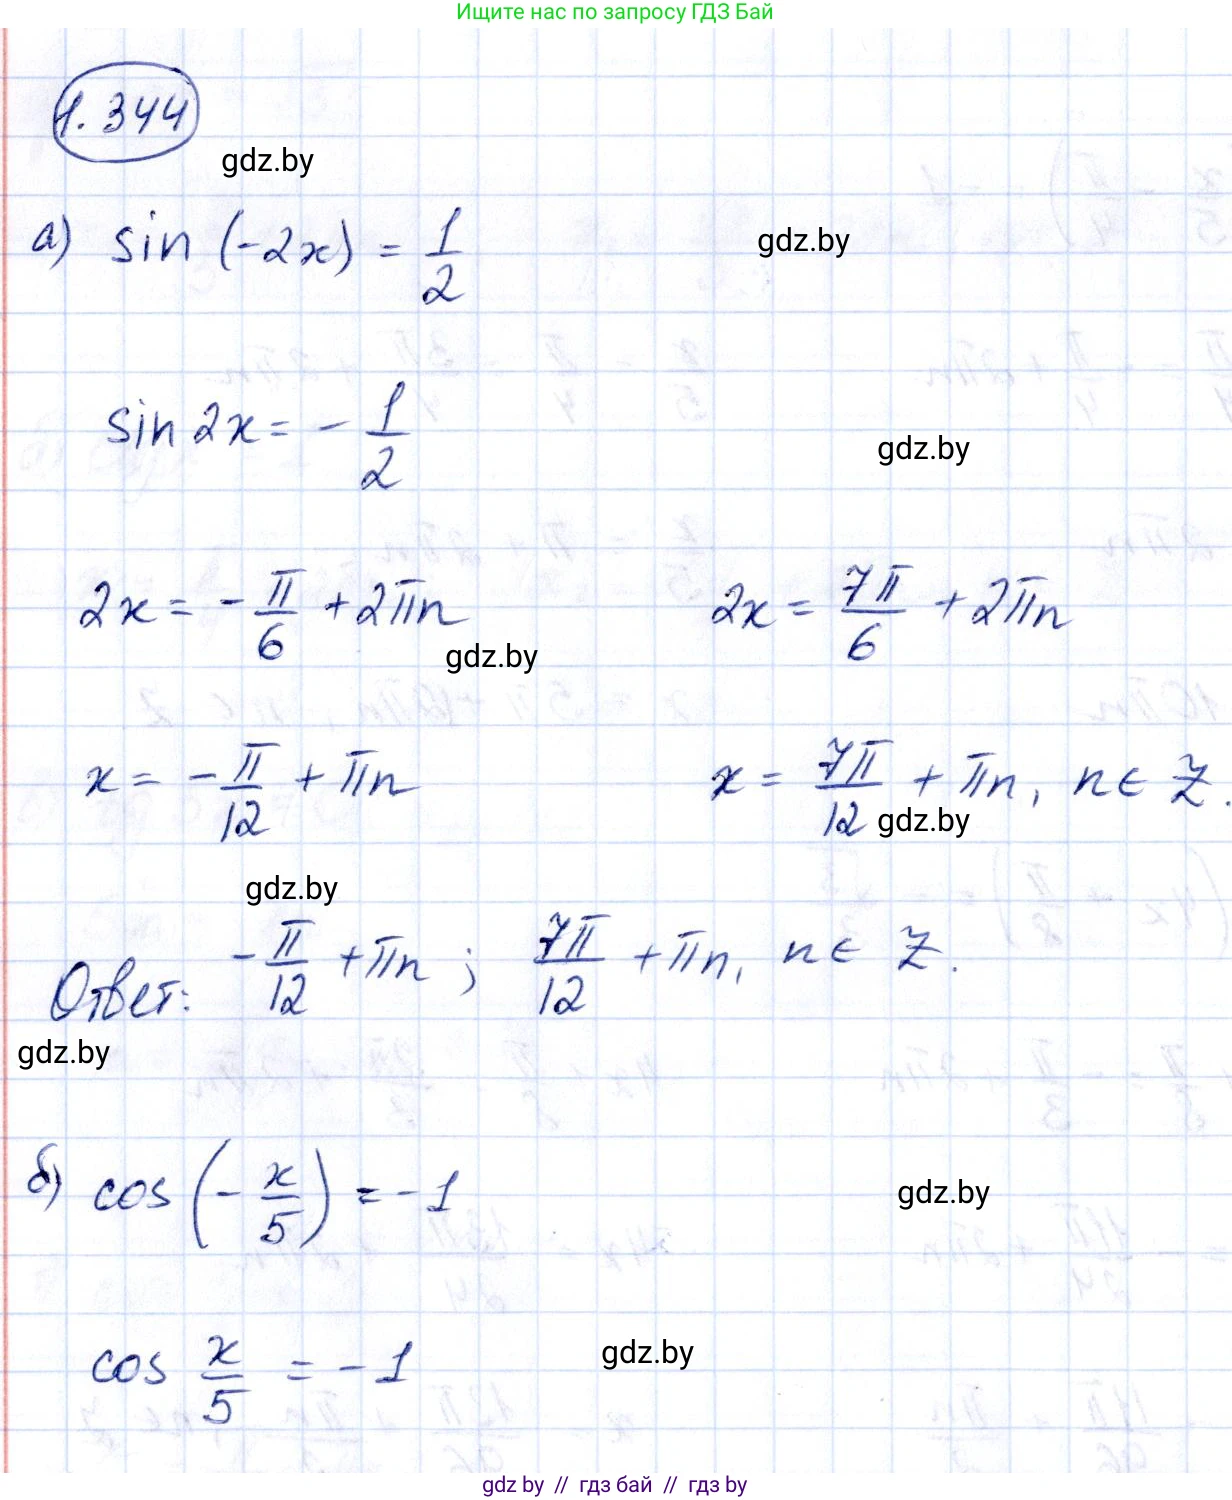 Ищите нас по запросу ГДЗ Бай
1.344
gdz.by
а) sin (-2x) = 1/2
gdz.by
sin 2x = - 1/2
gdz.by
2x = - π/6 + 2πn
2x = 7π/6 + 2πn
gdz.by
x = - π/12 + πn
x = 7π/12 + πn, n ∈ Z.
gdz.by
gdz.by
Ответ: - π/12 + πn ; 7π/12 + πn, n ∈ Z.
gdz.by
б) cos (- x/5) = -1
gdz.by
cos x/5 = -1
gdz.by
gdz by // гдз бай // гдз by